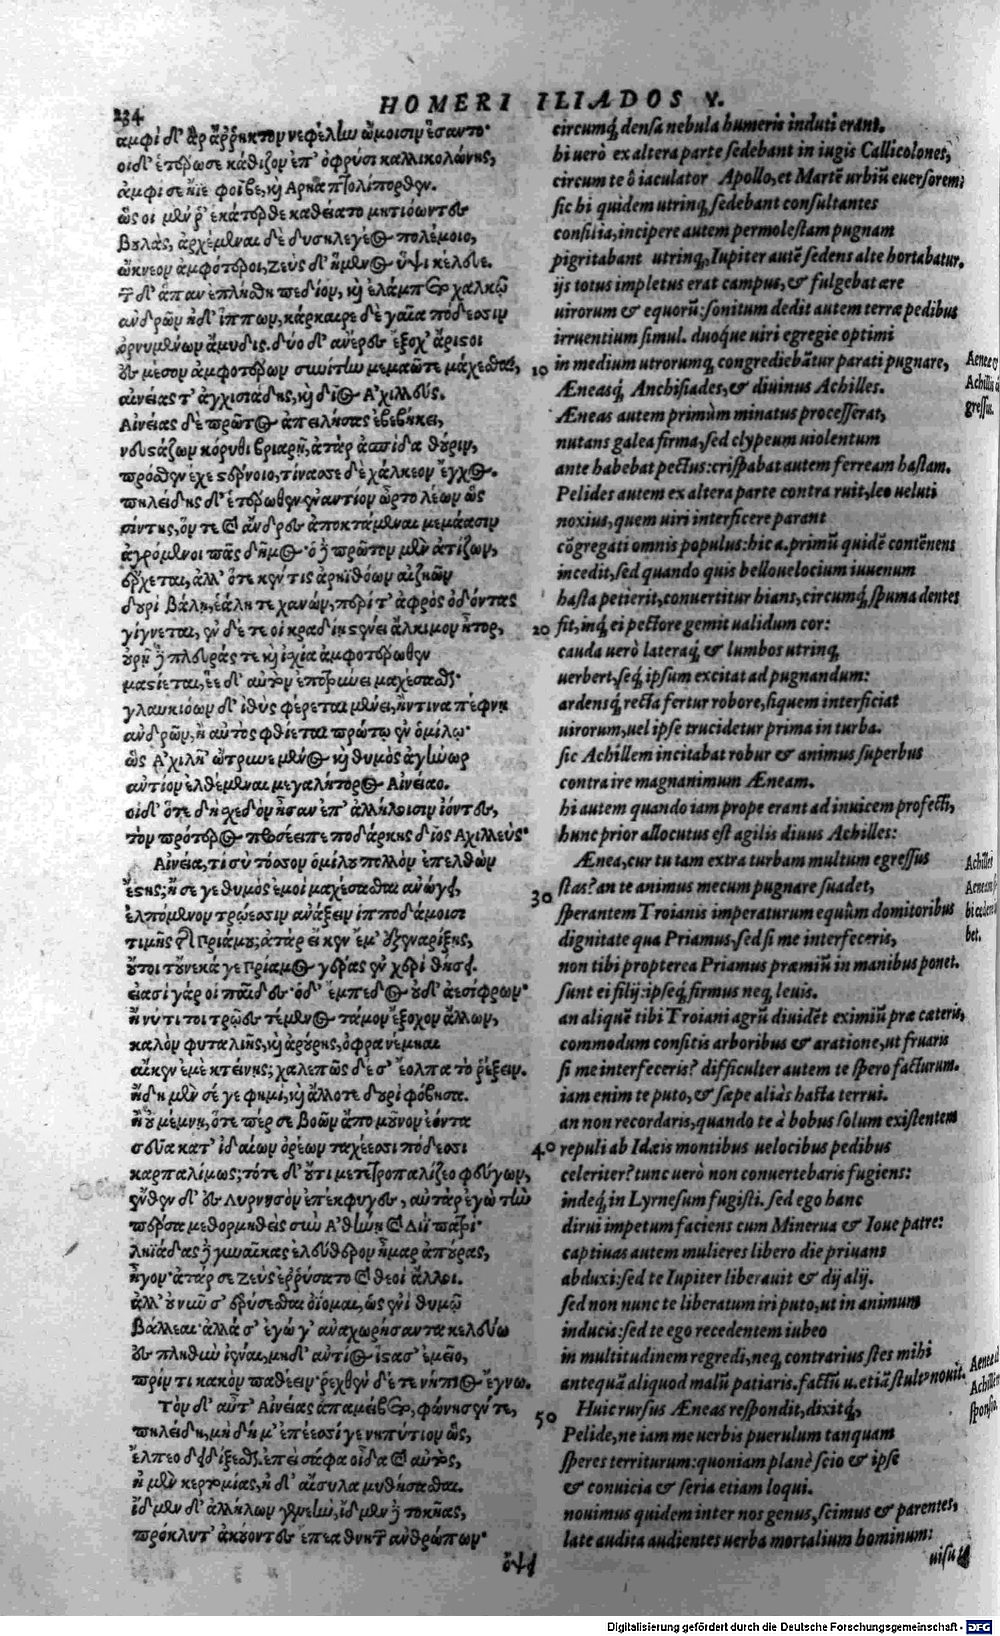 234
HOMERI ILIADOS Υ.
ἀμφὶ δ' ἂρ ἄῤῥηκτον νεφέλην ὤμοισιν ἕσαντο·
οἱ δ' ἑτέρωσε κάθιζον ἐπ' ὀφρύσι καλλικολώνης,
ἀμφὶ σε ἤϊε φοῖβε, κỳ Ἄρηα πτολίπορθον.
ὣς οἱ μὲν ῥ' ἑκάτερθε καθείατο μητιόωντες
βουλὰς, ἀρχέμεναι δὲ δυσηλεγέος πολέμοιο,
ὤκνεον ἀμφότεροι, Ζεὺς δ' ἥμενος ὕψι κέλευε.
τῶν δ' ἅπαν ἐπλήσθη πεδίον, κỳ ἐλάμπετο χαλκῷ
ἀνδρῶν ἠδ' ἵππων, κάρκαιρε δὲ γαῖα πόδεσσιν
ὀρνυμένων ἄμυδις. δύο δ' ἀνέρες ἔξοχ' ἄριστοι
ἐς μέσον ἀμφοτέρων συνίτην μεμαῶτε μάχεσθαι,
αἰνείας τ' ἀγχισιάδης, κỳ δῖος Ἀχιλλεύς.
Αἰνείας δὲ πρῶτος ἀπειλήσας ἐβεβήκει,
νευστάζων κόρυθι βριαρῇ, ἀτὰρ ἀσπίδα θοῦριν,
πρόσθεν ἔχε στέρνοιο, τίνασσε δὲ χάλκεον ἔγχος.
πηλείδης δ' ἑτέρωθεν ἐναντίον ὦρτο λέων ὣς
σίντης, ὅν τε καὶ ἄνδρες ἀποκτάμεναι μεμάασιν
ἀγρόμενοι πᾶς δῆμος· ὁ δὲ πρῶτον μὲν ἀτίζων,
ἔρχεται, ἀλλ' ὅτε κέν τις ἀρηϊθόων αἰζηῶν
δουρὶ βάλῃ, ἑάλη τε χανών, περί τ' ἀφρὸς ὀδόντας
γίγνεται, ἐν δέ τε οἱ κραδίη στένει ἄλκιμον ἦτορ,
οὐρῇ δὲ πλευράς τε κỳ ἰσχία ἀμφοτέρωθεν
μαστίεται, ἓε δ' αὐτὸν ἐποτρύνει μαχέσασθαι·
γλαυκιόων δ' ἰθὺς φέρεται μένει, ἤν τινα πέφνῃ
ἀνδρῶν, ἢ αὐτὸς φθίεται πρώτῳ ἐν ὁμίλῳ·
ὣς Ἀχιλῆ' ὤτρυνε μένος κỳ θυμὸς ἀγήνωρ
ἀντίον ἐλθέμεναι μεγαλήτορος Αἰνείαο.
οἱ δ' ὅτε δὴ σχεδὸν ἦσαν ἐπ' ἀλλήλοισιν ἰόντες,
τὸν πρότερος προσέειπε ποδάρκης δῖος Ἀχιλλεύς·
Αἰνεία, τί σὺ τόσσον ὁμίλου πολλὸν ἐπελθὼν
ἔστης; ἦ σέ γε θυμὸς ἐμοὶ μαχέσασθαι ἀνώγει,
ἐλπόμενον τρώεσσιν ἀνάξειν ἱπποδάμοισι
τιμῆς τῆς Πριάμου; ἀτὰρ εἴ κεν ἔμ' ἐξεναρίξῃς,
οὔτοι τοὔνεκά γε Πρίαμος γέρας ἐν χερὶ θήσει.
εἰσὶ γάρ οἱ παῖδες· ὁ δ' ἔμπεδος οὐδ' ἀεσίφρων·
ἦ νύ τί τοι τρῶες τέμενος τάμον ἔξοχον ἄλλων,
καλὸν φυταλιῆς, κỳ ἀρούρης, ὄφρα νέμηαι
αἴ κεν ἐμὲ κτείνῃς; χαλεπῶς δέ σ' ἔολπα τὸ ῥέξειν.
ἤδη μὲν σέ γε φημὶ, κỳ ἄλλοτε δουρὶ φόβησα.
ἢ οὐ μέμνῃ, ὅτε πέρ σε βοῶν ἄπο μοῦνον ἐόντα
σεῦα κατ' ἰδαίων ὀρέων ταχέεσσι πόδεσσι
καρπαλίμως; τότε δ' οὔτι μετετροπαλίζεο φεύγων,
ἔνθεν δ' ἐς Λυρνησὸν ὑπέκφυγες, αὐτὰρ ἐγὼ τὴν
πέρσα μεθορμηθεὶς σὺν Ἀθήνῃ καὶ Διῒ πατρί·
ληϊάδας δὲ γυναῖκας ἐλεύθερον ἦμαρ ἀπούρας,
ἦγον· ἀτάρ σε Ζεὺς ἐῤῥύσατο καὶ θεοὶ ἄλλοι.
ἀλλ' οὐ νῦν σ' ἐρύσεσθαι ὀΐομαι, ὡς ἐνὶ θυμῷ
βάλλεαι· ἀλλά σ' ἐγώ γ' ἀναχωρήσαντα κελεύω
ἐς πληθὺν ἰέναι, μηδ' ἀντίος ἵστασ' ἐμεῖο,
πρίν τι κακὸν παθέειν· ῥεχθὲν δέ τε νήπιος ἔγνω.
Τὸν δ' αὖτ' Αἰνείας ἀπαμείβετο, φώνησέν τε,
πηλείδη, μὴ δή μ' ἐπέεσσί γε νηπύτιον ὣς,
ἔλπεο δειδίξεσθαι. ἐπεὶ σάφα οἶδα καὶ αὐτὸς,
ἠ μὲν κερτομίας, ἠ δ' αἴσυλα μυθήσασθαι.
ἴδμεν δ' ἀλλήλων γενεὴν, ἴδμεν δὲ τοκῆας,
πρόκλυτ' ἀκούοντες ἔπεα θνητῶν ἀνθρώπων·
ὄψει
circumq; densa nebula humeris induti erant.
hi uerò ex altera parte sedebant in iugis Callicolones,
circum te ô iaculator Apollo, et Martē urbiū euersorem:
sic hi quidem utrinq; sedebant consultantes
consilia, incipere autem permolestam pugnam
pigritabant utrinq;, Iupiter autē sedens alte hortabatur.
ijs totus impletus erat campus, & fulgebat ære
uirorum & equorū: sonitum dedit autem terra pedibus
irruentium simul. duoque uiri egregie optimi
10 in medium utrorumq; congrediebātur parati pugnare,
Æneasq́; Anchisiades, & diuinus Achilles.
Æneas autem primùm minatus processerat,
nutans galea firma, sed clypeum uiolentum
ante habebat pectus: crispabat autem ferream hastam.
Pelides autem ex altera parte contra ruit, leo ueluti
noxius, quem uiri interficere parant
cōgregati omnis populus: hic a. primū quidē contēnens
incedit, sed quando quis bellouelocium iuuenum
hasta petierit, conuertitur hians, circumq́; spuma dentes
20 fit, inq́; ei pectore gemit ualidum cor:
cauda uerò lateraq́; & lumbos utrinq;
uerbert, seq́; ipsum excitat ad pugnandum:
ardensq́; recta fertur robore, siquem interficiat
uirorum, uel ipse trucidetur prima in turba.
sic Achillem incitabat robur & animus superbus
contra ire magnanimum Æneam.
hi autem quando iam prope erant ad inuicem profecti,
hunc prior allocutus est agilis diuus Achilles:
Ænea, cur tu tam extra turbam multum egressus
30 stas? an te animus mecum pugnare suadet,
sperantem Troianis imperaturum equûm domitoribus
dignitate qua Priamus, sed si me interfeceris,
non tibi propterea Priamus præmiū in manibus ponet.
sunt ei filij: ipseq́; firmus neq; leuis.
an aliquē tibi Troiani agrū diuidēt eximiū præ cæteris,
commodum consitis arboribus & aratione, ut fruaris
si me interfeceris? difficulter autem te spero facturum.
iam enim te puto, & sæpe aliàs hasta terrui.
an non recordaris, quando te à bobus solum existentem
40 repuli ab Idæis montibus uelocibus pedibus
celeriter? tunc uerò non conuertebaris fugiens:
indeq́; in Lyrnesum fugisti. sed ego hanc
dirui impetum faciens cum Minerua & Ioue patre:
captiuas autem mulieres libero die priuans
abduxi: sed te Iupiter liberauit & dij alij.
sed non nunc te liberatum iri puto, ut in animum
inducis: sed te ego recedentem iubeo
in multitudinem regredi, neq; contrarius stes mihi
antequā aliquod malū patiaris. factū u. etiā stultº nouit.
50 Huic rursus Æneas respondit, dixitq́;,
Pelide, ne iam me uerbis puerulum tanquam
speres territurum: quoniam planè scio & ipse
& conuicia & seria etiam loqui.
nouimus quidem inter nos genus, scimus & parentes,
late audita audientes uerba mortalium hominum:
Achilles
bet.
Digitalisierung gefördert durch die Deutsche Forschungsgemeinschaft - DFG